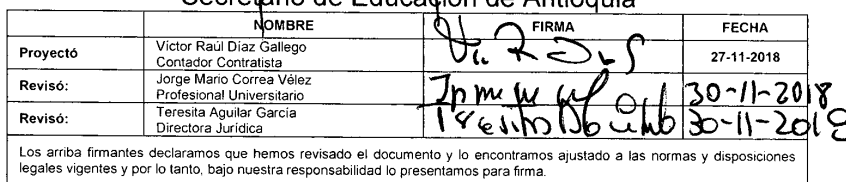 Secretario de Educación de Antioquia
NOMBRE FIRMA FECHA
Proyectó Víctor Raúl Díaz Gallego
Contador Contratista 27-11-2018
Revisó: Jorge Mario Correa Vélez
Profesional Universitario 30-11-2018
Revisó: Teresita Aguilar García
Directora Jurídica 30-11-2018
Los arriba firmantes declaramos que hemos revisado el documento y lo encontramos ajustado a las normas y disposiciones
legales vigentes y por lo tanto, bajo nuestra responsabilidad lo presentamos para firma.